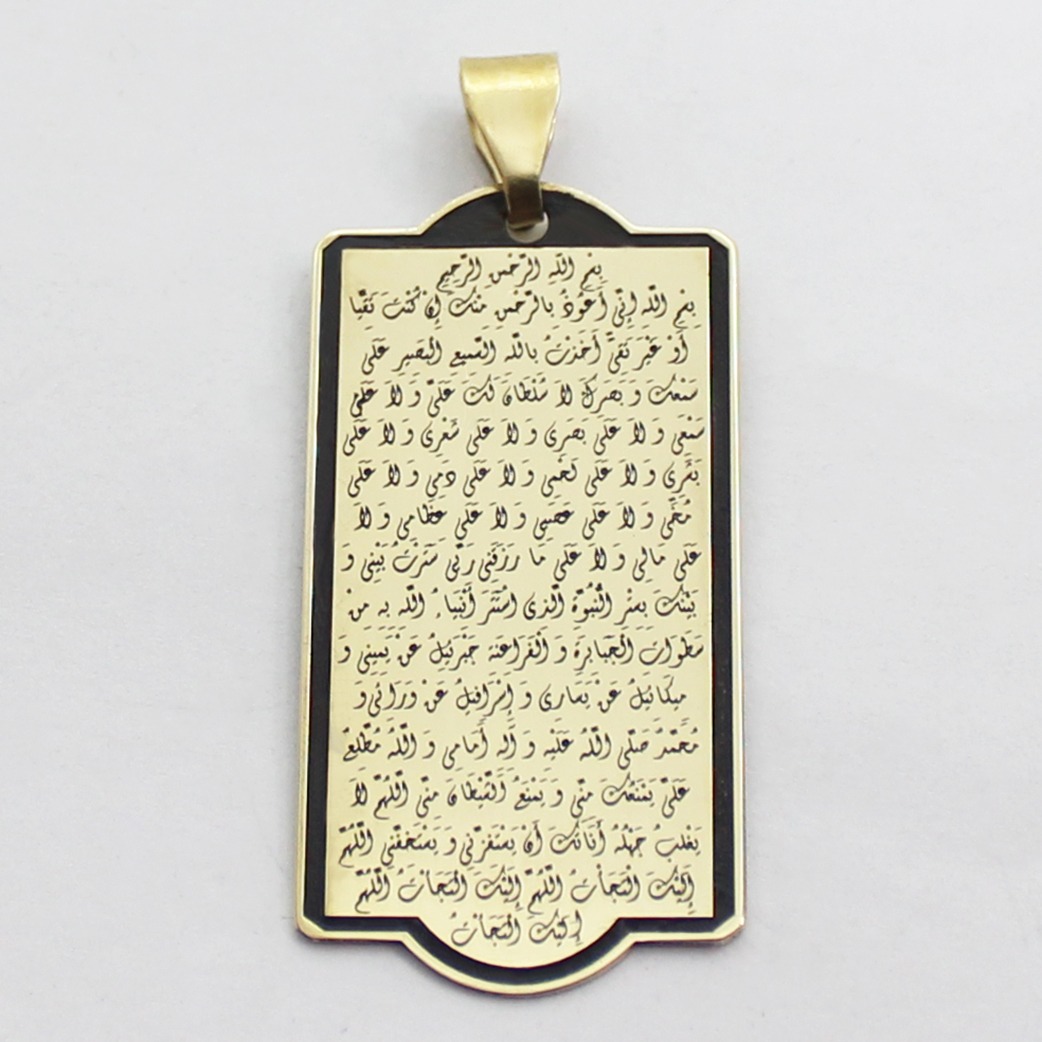 بِسْمِ اللَّهِ الرَّحْمنِ الرَّحِيمِ
بِسْمِ اللَّه إِنِّي أَعُوذُ بالرَّحْمنِ مِنْكَ إِنْ كُنْتَ تَقِيّا
أَوْ غَيْرَ تَقىٍّ أَخَذْتُ باللَّه السَّميعِ الْبَصيرِ عَلَى
سَمْعِكَ وَ بَصَرِكَ لاَ سُلْطَانَ لَكَ عَلَىَّ وَ لاَ عَلَى
سَمْعَى وَ لاَ عَلَىَ بَصَرى وَ لاَ عَلَى شَعْرى وَ لاَ عَلَى
بَشَرِى وَ لاَ عَلَى لَحْمِى وَ لاَ عَلَى دَمِى وَ لاَ عَلَى
مُخِّى وَ لاَ عَلَى عَصَبِى وَ لاَ عَلَى عِظَامِى وَ لاَ
عَلَى مَالِى وَ لاَ عَلَى مَا رَزَقَنِى رَبِّى سَتَرْتُ بَيْنِى وَ
بَيْنَكَ بِسِتْرِ النُّبُوَّةِ الَّذِى اسْتَتَرَ أَنْبِيَاءُ اللَّه بِه مِنْ
سَطَوَاتِ الْجَبَابِرَةِ وَ الْفَرَاعِنَةِ جَبْرَئِيلُ عَنْ يَمِينِى وَ
مِيكَائِيلُ عَنْ يَسَارِى وَ إِسْرَافِيلُ عَنْ وَرَائِى وَ
مُحَمَّدٌ صَلَّى اللَّهُ عَلَيْه وَ آلِه أَمَامِى وَ اللَّهُ مُطَّلِعٌ
عَلَىَّ يَمْنَعُكَ مِنِّى وَ يَمْنَعُ الشَّيْطَانَ مِنِّى اللَّهُمَّ لاَ
يَغْلِبُ جَهْلُهُ أَنَاتَكَ أَنْ يَسْتَفِزَّنِى وَ يَسْتَخِفَّنِى اللَّهُمَّ
إِلَيْكَ الْتَجَأْتُ اللَّهُمَّ إِلَيْكَ الْتَجَأْتُ اللَّهُمَّ
إِلَيْكَ الْتَجَأْتُ